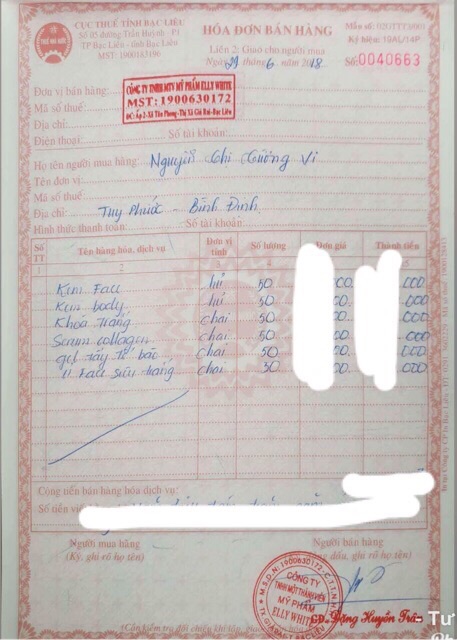 CỤC THUẾ TỈNH BẠC LIÊU
Số 05 đường Trần Huỳnh - P1
TP Bạc Liêu - tỉnh Bạc Liêu
MST: 1900163196
HÓA ĐƠN BÁN HÀNG
Liên 2: Giao cho người mua
Ngày 29 tháng 6 năm 2018
Mẫu số: 02GTTT3/001
Ký hiệu: 19AL/14P
Số: 0040663
Đơn vị bán hàng:
CÔNG TY TNHH MTV MỸ PHẨM ELLY WHITE
Mã số thuế:
MST: 1900630172
Địa chỉ:
ĐC: Ấp 2-Xã Tân Phong-Thị Xã Giá Rai-Bạc Liêu
Điện thoại: Số tài khoản:
Họ tên người mua hàng: Nguyễn Thị Tường Vi
Tên đơn vị:
Mã số thuế:
Địa chỉ: Tuy Phước - Bình Định
Hình thức thanh toán: Số tài khoản:
Số TT Tên hàng hóa, dịch vụ Đơn vị tính Số lượng Đơn giá Thành tiền
Kem Face hủ 50 000 .000
Kem body hủ 50 000 .000
Khoá trắng chai 50 000. .000
Serum collagen chai 50 000 .000
gel tẩy tế bào chai 50 000 .000
11 Face siêu trắng chai 30 000 .000
Cộng tiền bán hàng hóa dịch vụ:
Số tiền viết
Người mua hàng
(Ký, ghi rõ họ tên)
Người bán hàng
dấu, ghi rõ họ tên)
M.S.D.N:1900630172-C.T.T.N.H.H
CÔNG TY
TNHH MỘT THÀNH VIÊN
MỸ PHẨM
ELLY WHITE
GĐ. Đặng Huyền Trân
(Cần kiểm tra đối chiếu khi lập, giao, nhận hóa đơn)